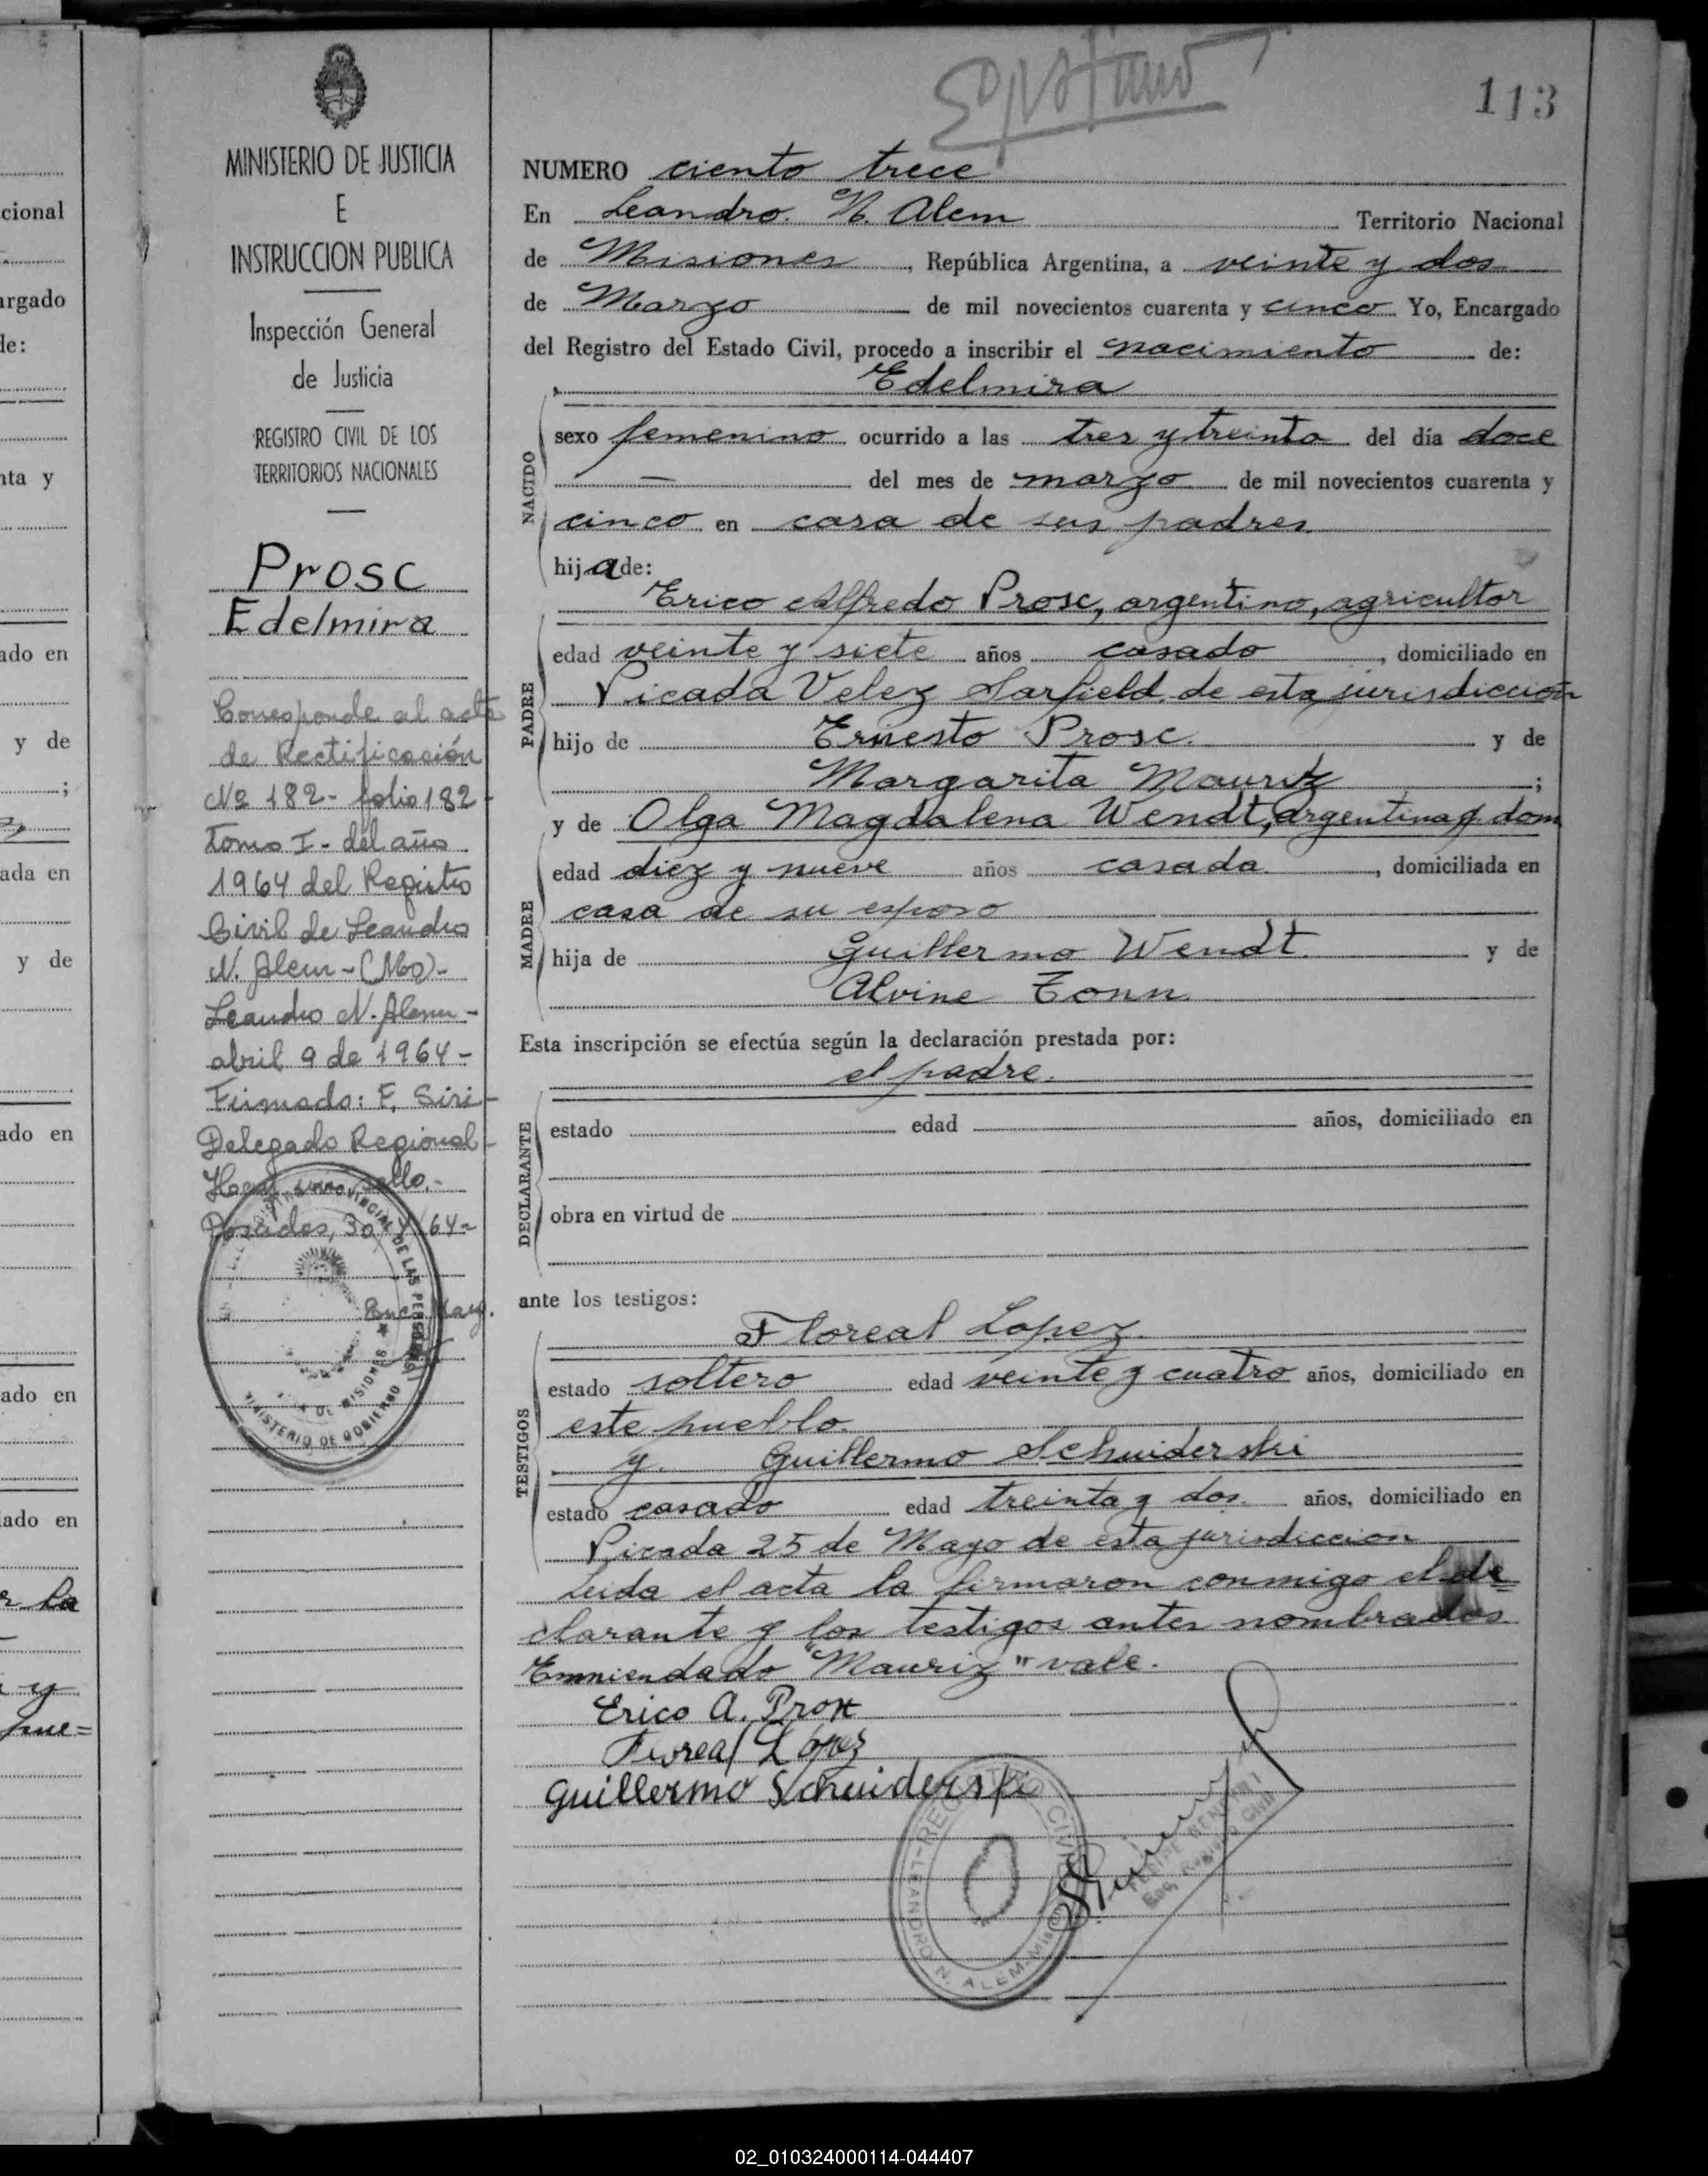 113
MINISTERIO DE JUSTICIA
E
INSTRUCCION PUBLICA
Inspección General
de Justicia
REGISTRO CIVIL DE LOS
TERRITORIOS NACIONALES
Prosc
Edelmira
Corresponde al acta
de Rectificación
Nº 182 - folio 182 -
Tomo I - del año
1964 del Registro
Civil de Leandro
N. Alem - (Mns) -
Leandro N. Alem -
abril 9 de 1964 -
Firmado: F. Siri -
Delegado Regional -
Hay un sello.-
Posadas, 30/4/64-
Enc. Marg.
PROVINCIAL DE LAS PERSONAS
MINISTERIO DE GOBIERNO
DE MISIONES
NUMERO ciento trece
En Leandro. N. Alem Territorio Nacional
de Misiones, República Argentina, a veinte y dos
de Marzo de mil novecientos cuarenta y cinco Yo, Encargado
del Registro del Estado Civil, procedo a inscribir el nacimiento de:
Edelmira
NACIDO
sexo femenino ocurrido a las tres y treinta del día doce
— del mes de marzo de mil novecientos cuarenta y
cinco en casa de sus padres.
hija de:
Erico Alfredo Prosc, argentino, agricultor
PADRE
edad veinte y siete años casado, domiciliado en
Picada Velez Sarfield, de esta jurisdiccion
hijo de Ernesto Prosc. y de
Margarita Mauriz;
y de Olga Magdalena Wendt, argentina q. dom
MADRE
edad diez y nueve años casada, domiciliada en
casa de su esposo
hija de Guillermo Wendt. y de
Alvine Tonn.
Esta inscripción se efectúa según la declaración prestada por:
el padre.
DECLARANTE
estado edad años, domiciliado en
obra en virtud de
ante los testigos:
Floreal Lopez.
TESTIGOS
estado soltero edad veinte y cuatro años, domiciliado en
este pueblo.
y. Guillermo Schuiderski
estado casado edad treinta y dos. años, domiciliado en
Picada 25 de Mayo de esta jurisdiccion
Leida el acta la firmaron conmigo el de=
clarante y los testigos antes nombrados
Enmiendado "Mauriz" vale.
Erico A. Prosc
Floreal López
Guillermo Schuiderski
REGISTRO CIVIL
LEANDRO N. ALEM-Misiones
Enc. Registro Civil
cional
argado
de:
nta y
ado en
y de
;
ada en
y de
ado en
ado en
iado en
r la
y
pue=
02_010324000114-044407